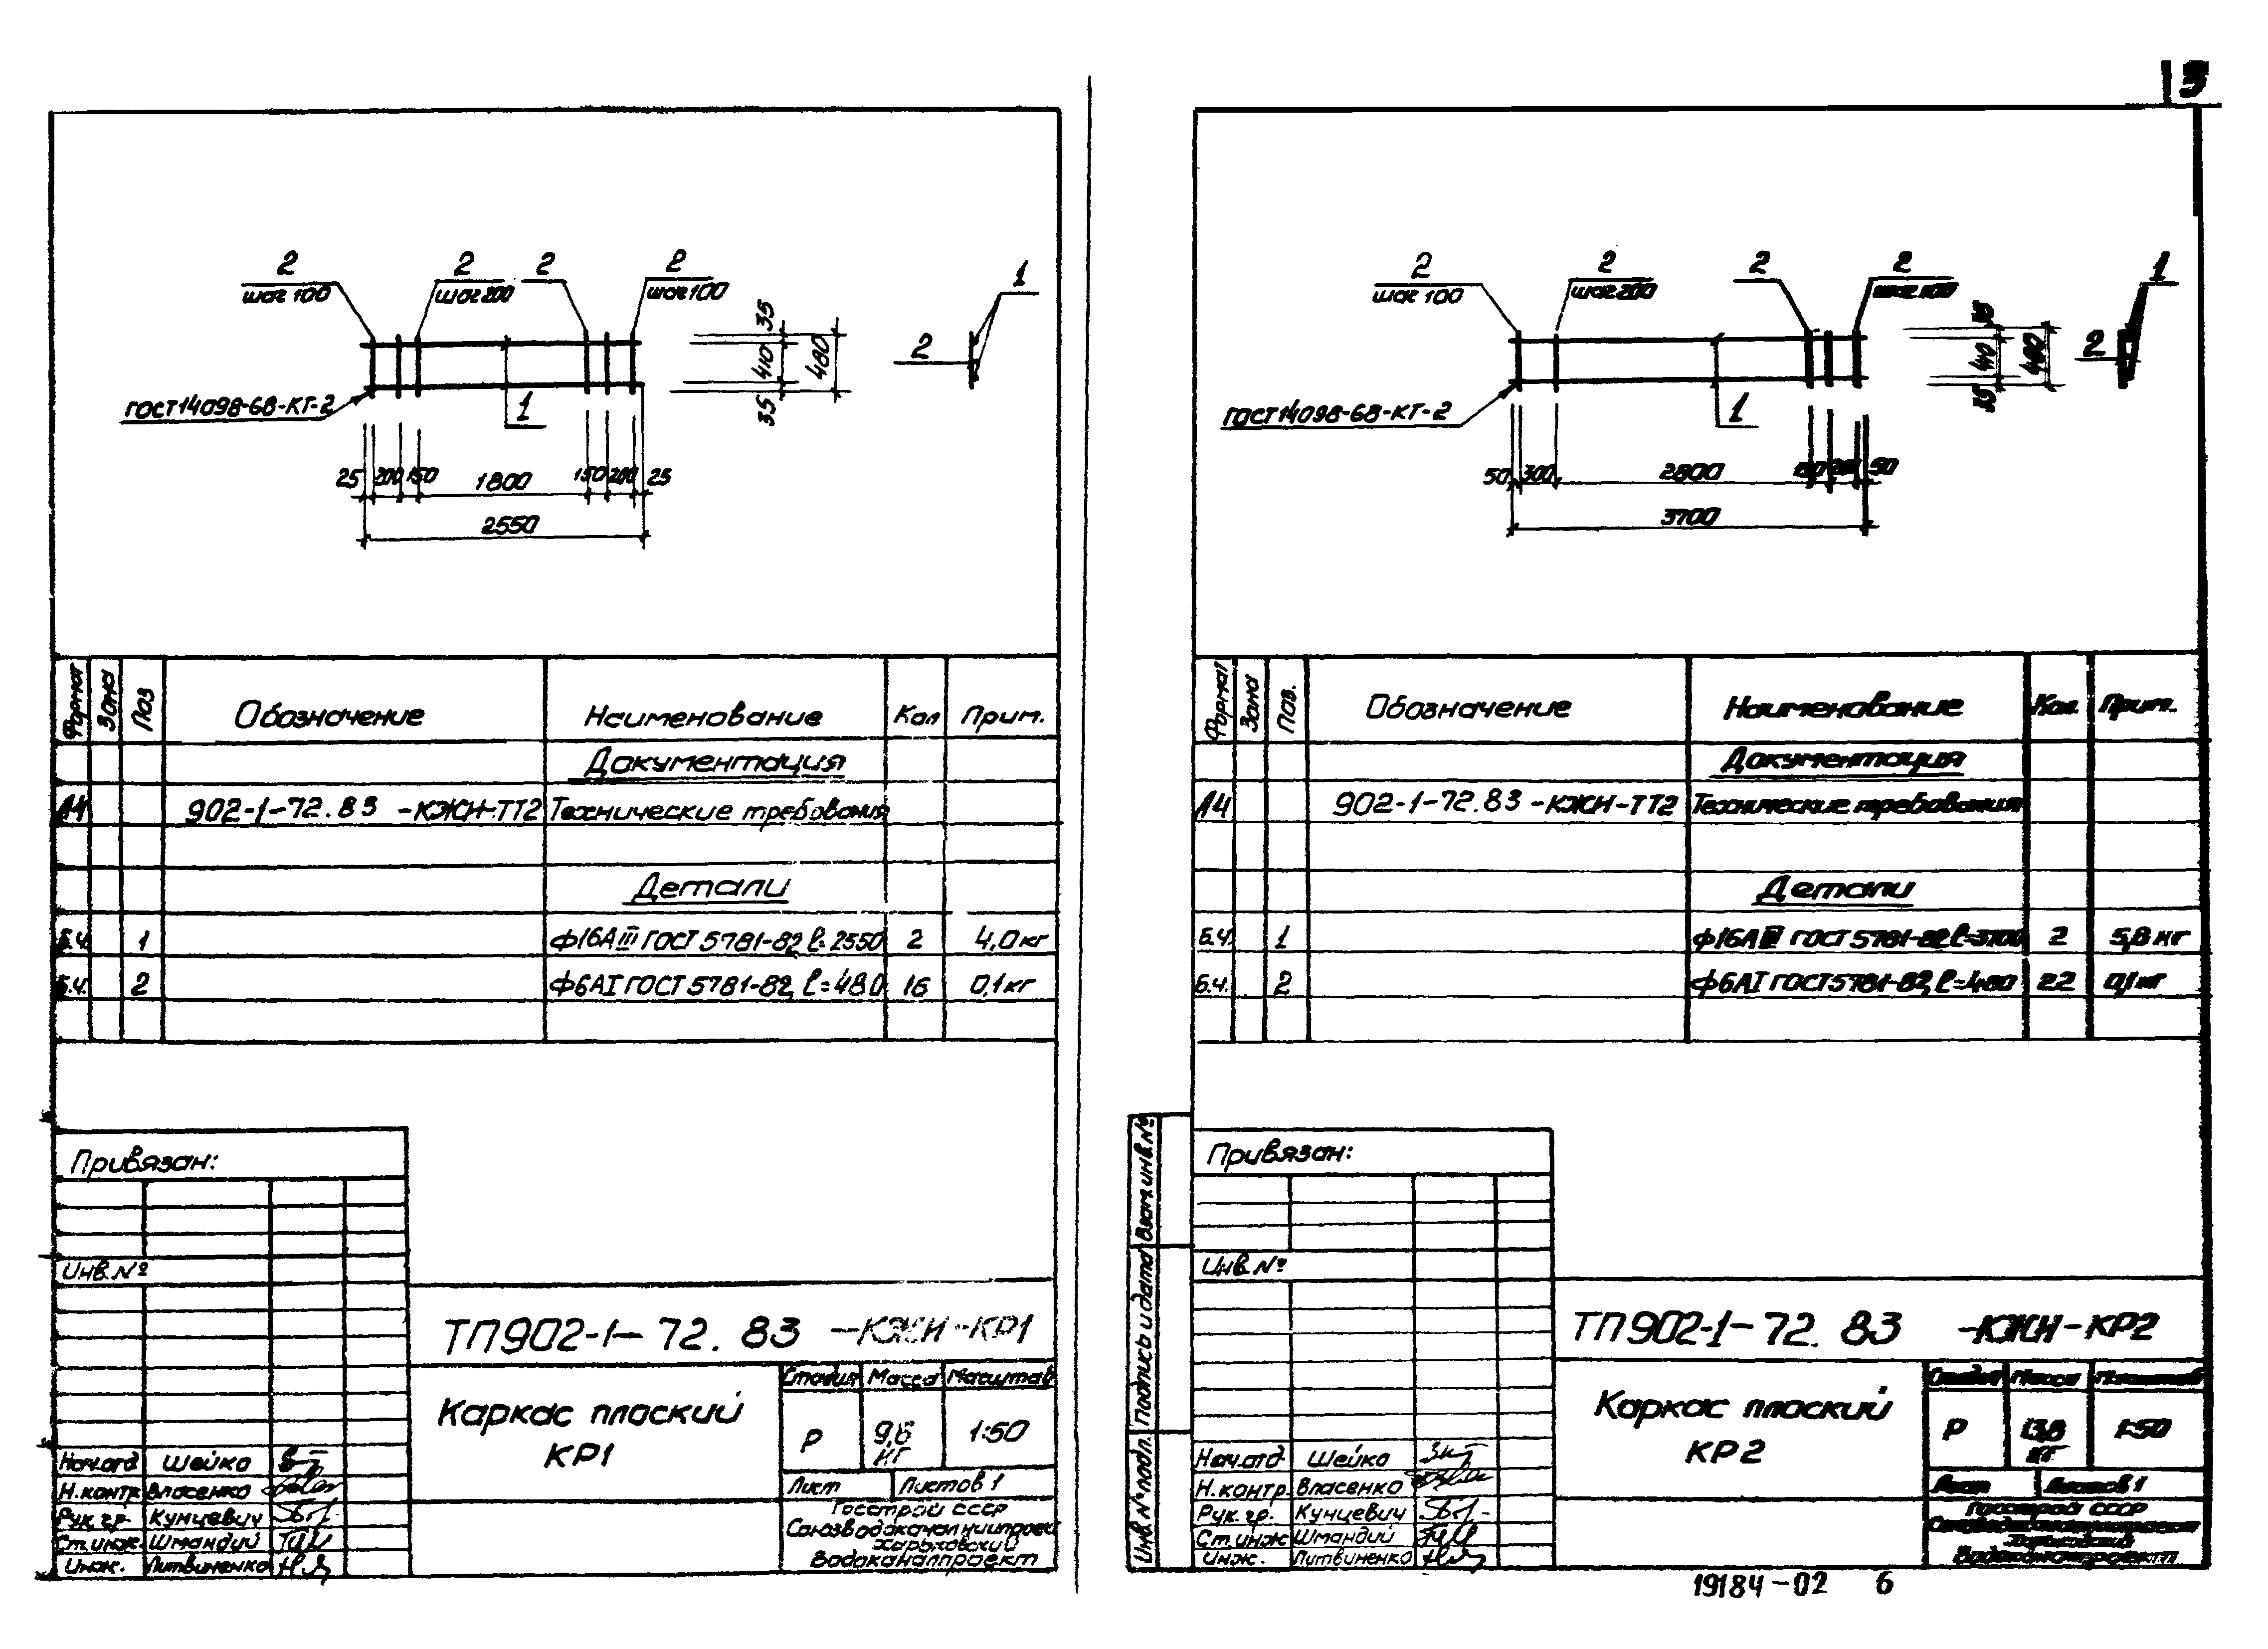 3
2
шаг 100
2
шаг 200
2
2
шаг 100
1
35
410
480
35
2
ГОСТ 14098-68-КТ-2
1
25 200 150 1800 150 200 25
2550
Формат Зона Поз Обозначение Наименование Кол Прим.
Документация
А4 902-1-72.83 -КЖИ-ТТ2 Технические требования
Детали
Б.Ч. 1 ф16АIII ГОСТ 5781-82 ℓ=2550 2 4,0 кг
Б.Ч. 2 ф6АI ГОСТ 5781-82, ℓ=480 16 0,1 кг
Привязан:
Инв.№
ТП902-1-72.83 -КЖИ-КР1
Каркас плоский
КР1
Стадия Масса Масштаб
Р 9,6 кг 1:50
Лист Листов 1
Госстрой СССР
Союзводоканалниипроект
Харьковский
Водоканалпроект
Нач.отд Шейко
Н.контр Власенко
Рук.гр. Кунцевич
Ст.инж. Шмандий
Инж. Литвиненко
2
шаг 100
2
шаг 200
2
2
шаг 100
1
2
ГОСТ 14098-68-КТ-2
1
50 300 2800 50
3700
Формат Зона Поз. Обозначение Наименование Кол. Прим.
Документация
А4 902-1-72.83 -КЖИ-ТТ2 Технические требования
Детали
Б.Ч. 1 ф16АIII ГОСТ 5781-82 ℓ=3700 2 5,8 кг
Б.Ч. 2 ф6АI ГОСТ 5781-82, ℓ=480 22 0,1 кг
Привязан:
Инв.№
Взам.инв.№
Подпись и дата
Инв.№ подл.
ТП902-1-72.83 -КЖИ-КР2
Каркас плоский
КР2
Стадия Масса Масштаб
Р 13,8 кг 1:50
Лист Листов 1
Госстрой СССР
Союзводоканалниипроект
Харьковский
Водоканалпроект
Нач.отд Шейко
Н.контр. Власенко
Рук.гр. Кунцевич
Ст.инж Шмандий
Инж. Литвиненко
19184-02 6